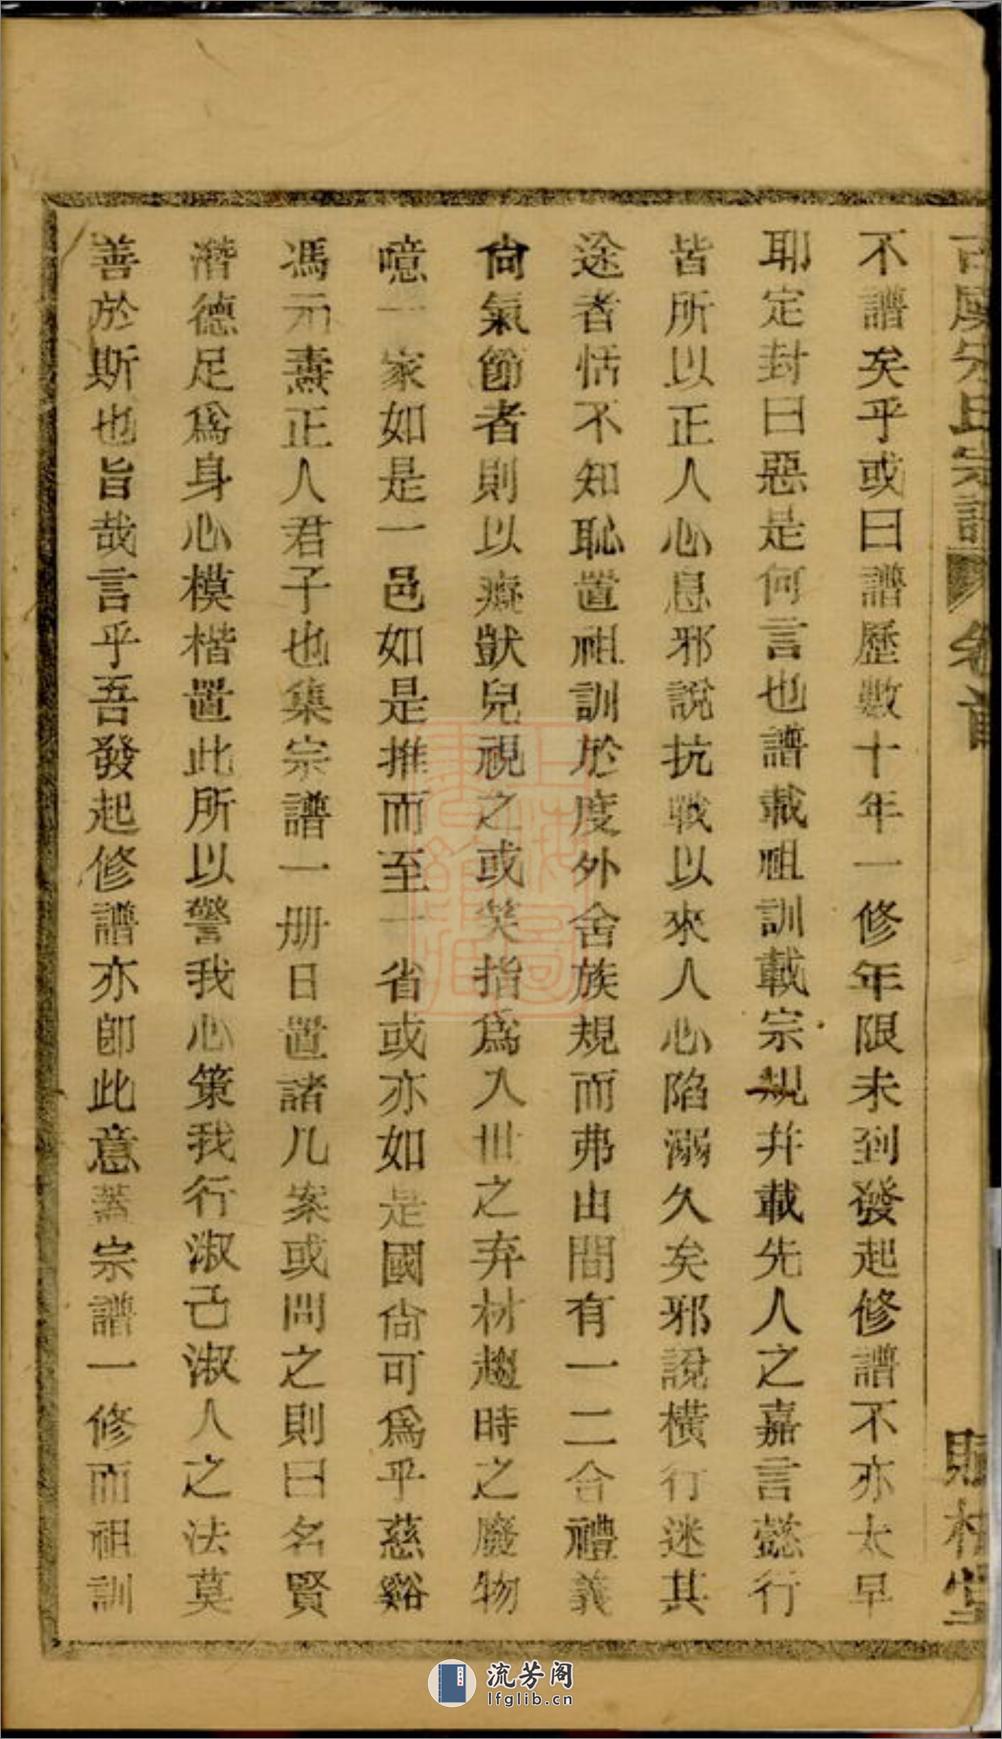 古虞宋氏宗譜 卷首 賦梅堂
不譜矣乎或曰譜歷數十年一修年限未到發起修譜不亦太早
耶定封曰惡是何言也譜載祖訓載宗規幷載先人之嘉言懿行
皆所以正人心息邪說抗戰以來人心陷溺久矣邪說橫行迷其
途者恬不知恥置祖訓於度外舍族規而弗由間有一二合禮義
尙氣節者則以癡獃兒視之或笑指爲入世之弃材趨時之廢物
噫一家如是一邑如是推而至一省或亦如是國尙可爲乎慈谿
馮元燾正人君子也集宗譜一册日置諸几案或問之則曰名賢
潛德足爲身心模楷置此所以警我心策我行淑己淑人之法莫
善於斯也旨哉言乎吾發起修譜亦卽此意蓋宗譜一修而祖訓
上海圖書館藏
流芳阁
lfglib.cn